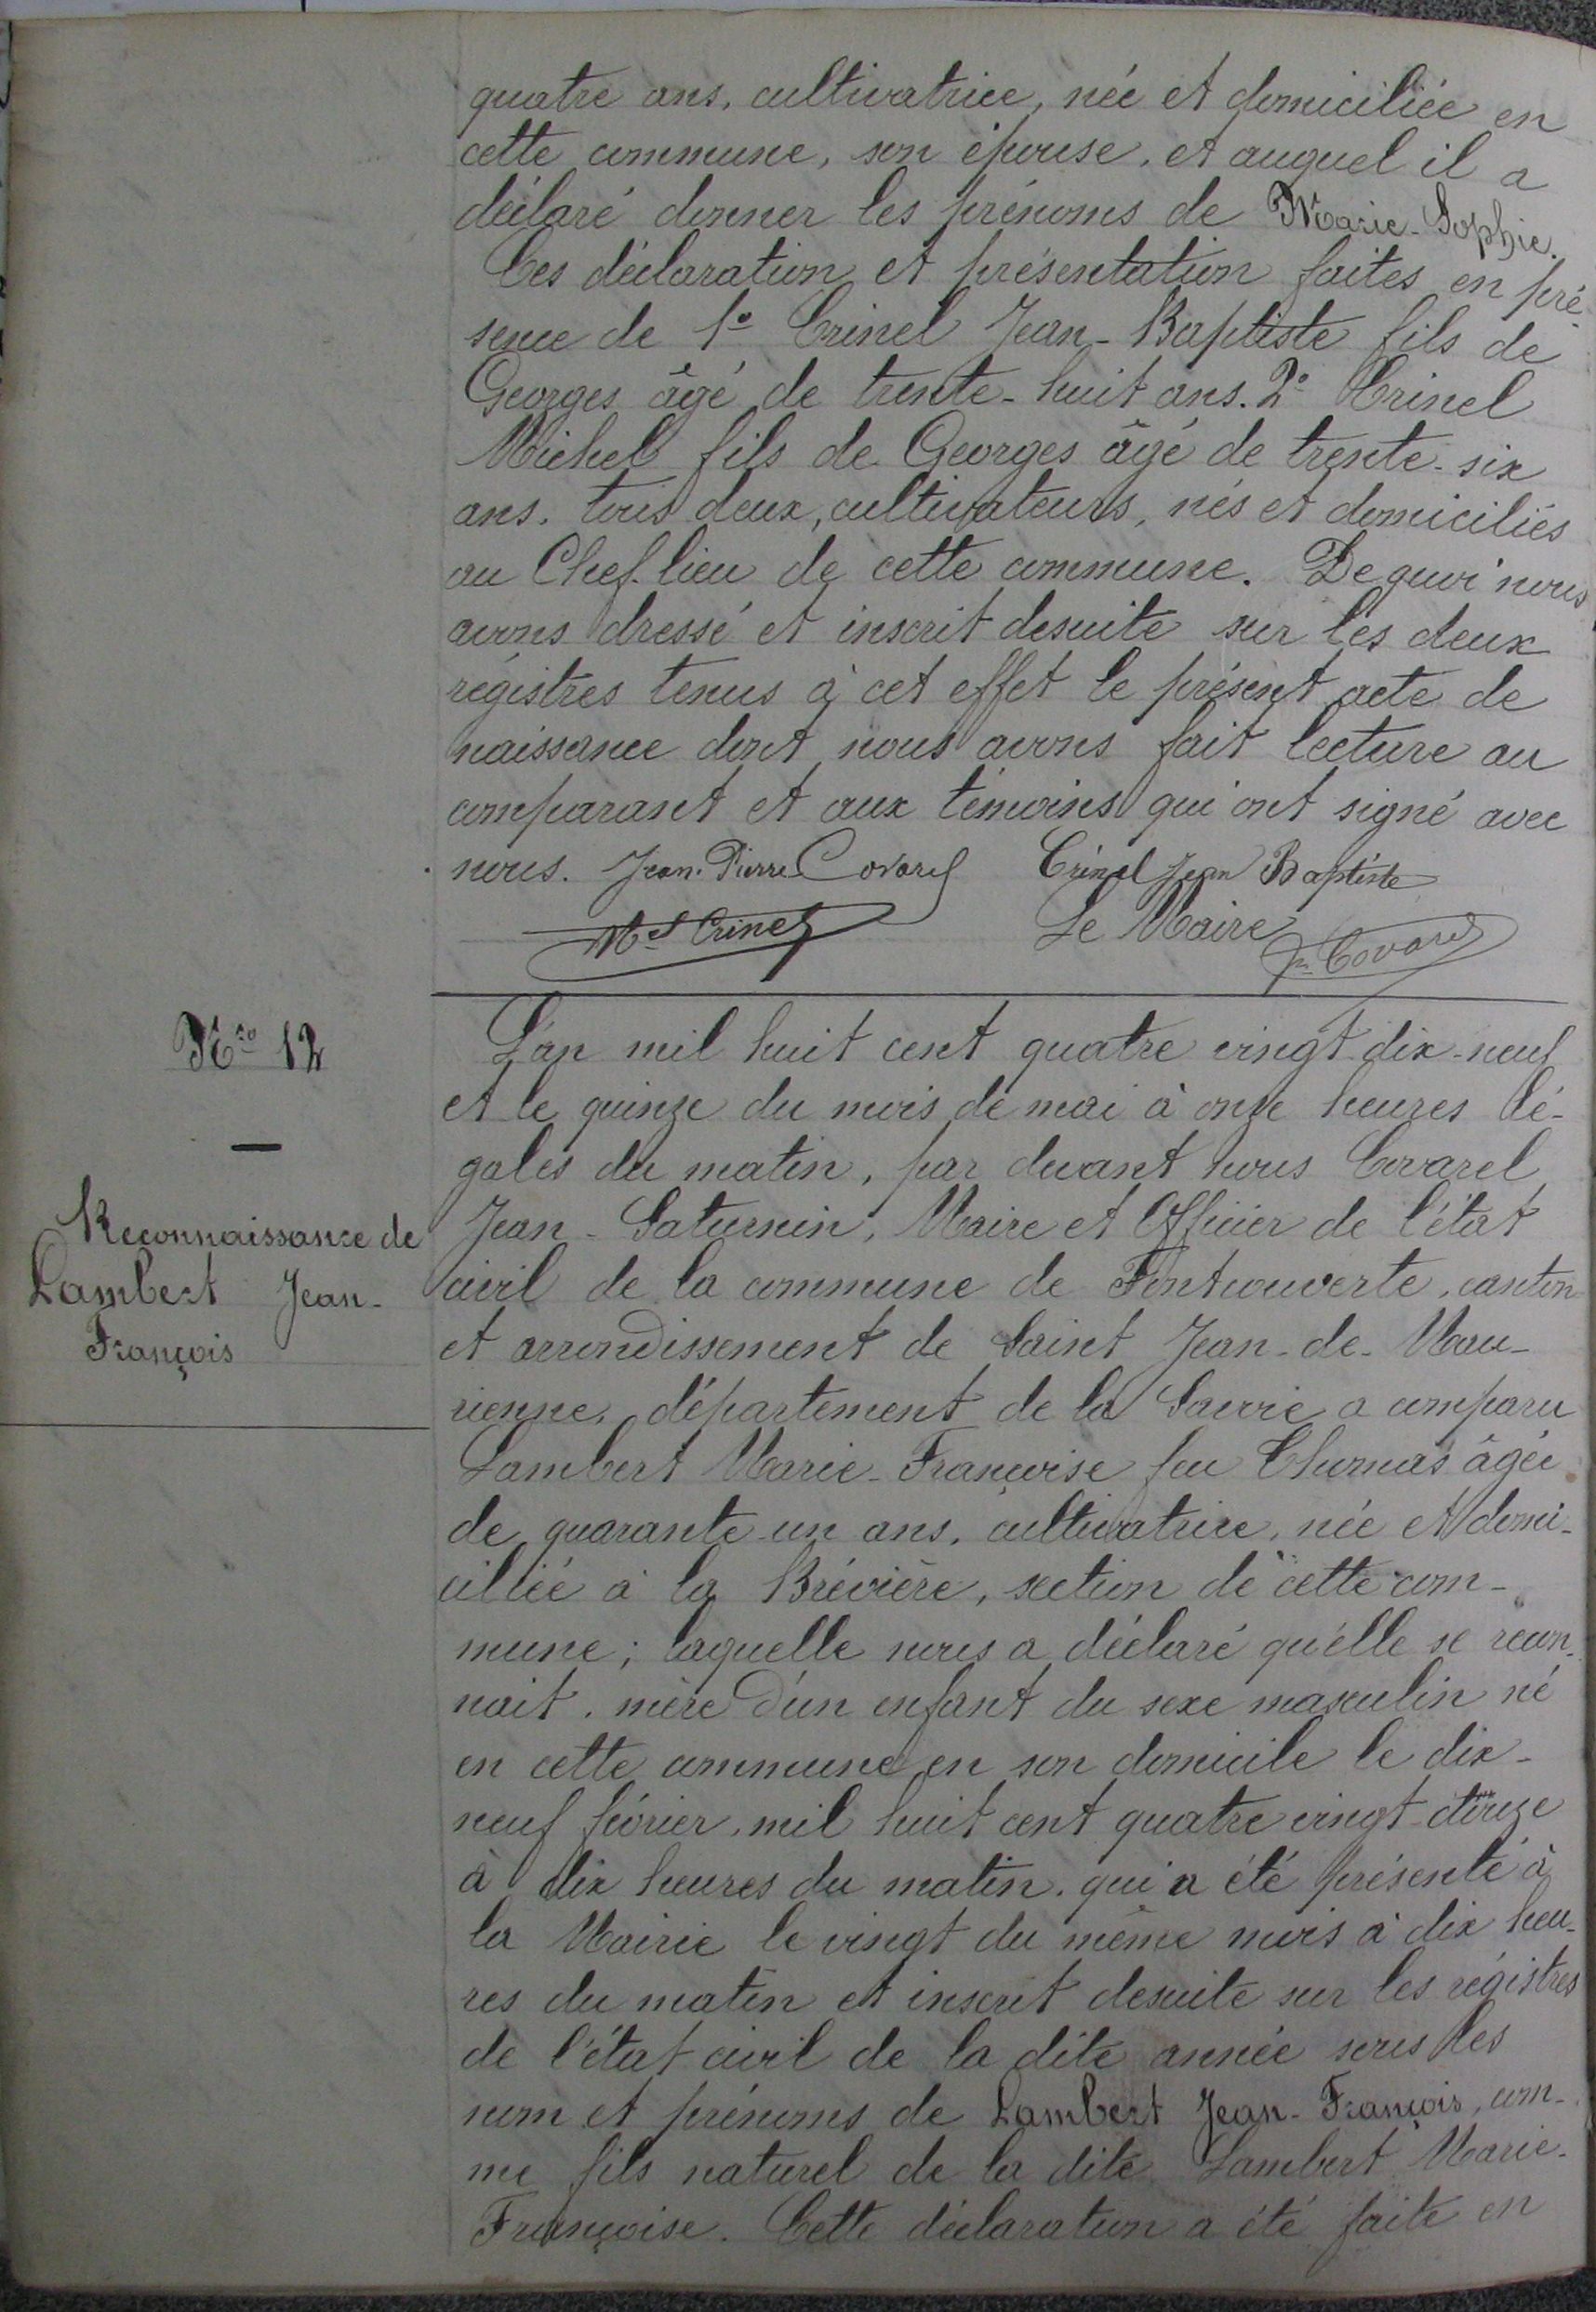 quatre ans, cultivatrice, née et domiciliée en
cette commune, son épouse, et auquel il a
déclaré donner les prénoms de Marie-Sophie.
Ces déclaration et présentation faites en pré-
sence de 1º Crinel Jean-Baptiste fils de
Georges âgé de trente-huit ans. 2º Crinel
Michel fils de Georges âgé de trente-six
ans, tous deux, cultivateurs, nés et domiciliés
au Chef-lieu de cette commune. De quoi nous
avons dressé et inscrit desuite sur les deux
régistres tenus à cet effet le présent acte de
naissance dont nous avons fait lecture au
comparant et aux témoins qui ont signé avec
nous. Jean-Pierre Covarel Crinel Jean Baptiste
Mel Crinel Le Maire Jn Covarel
Nro 12
Reconnaissance de
Lambert Jean-
François
L'an mil huit cent quatre vingt-dix-neuf
et le quinze du mois de mai à onze heures lé-
gales du matin, par devant nous Covarel
Jean-Saturnin, Maire et Officier de l'état
civil de la commune de Fontcouverte, canton
et arrondissement de Saint Jean-de-Mau-
rienne, département de la Savoie a comparu
Lambert Marie-Françoise feu Thomas âgée
de quarante-un ans, cultivatrice, née et domi-
ciliée à la Brévière, section de cette com-
mune; laquelle nous a déclaré qu'elle se recon-
nait, mère d'un enfant du sexe masculin né
en cette commune en son domicile le dix-
neuf février, mil huit cent quatre vingt-douze
à dix heures du matin, qui a été présenté à
la Mairie le vingt du même mois à dix heu-
res du matin et inscrit desuite sur les régistres
de l'état civil de la dite année sous les
nom et prénoms de Lambert Jean-François, com-
me fils naturel de la dite Lambert Marie-
Françoise. Cette déclaration a été faite en